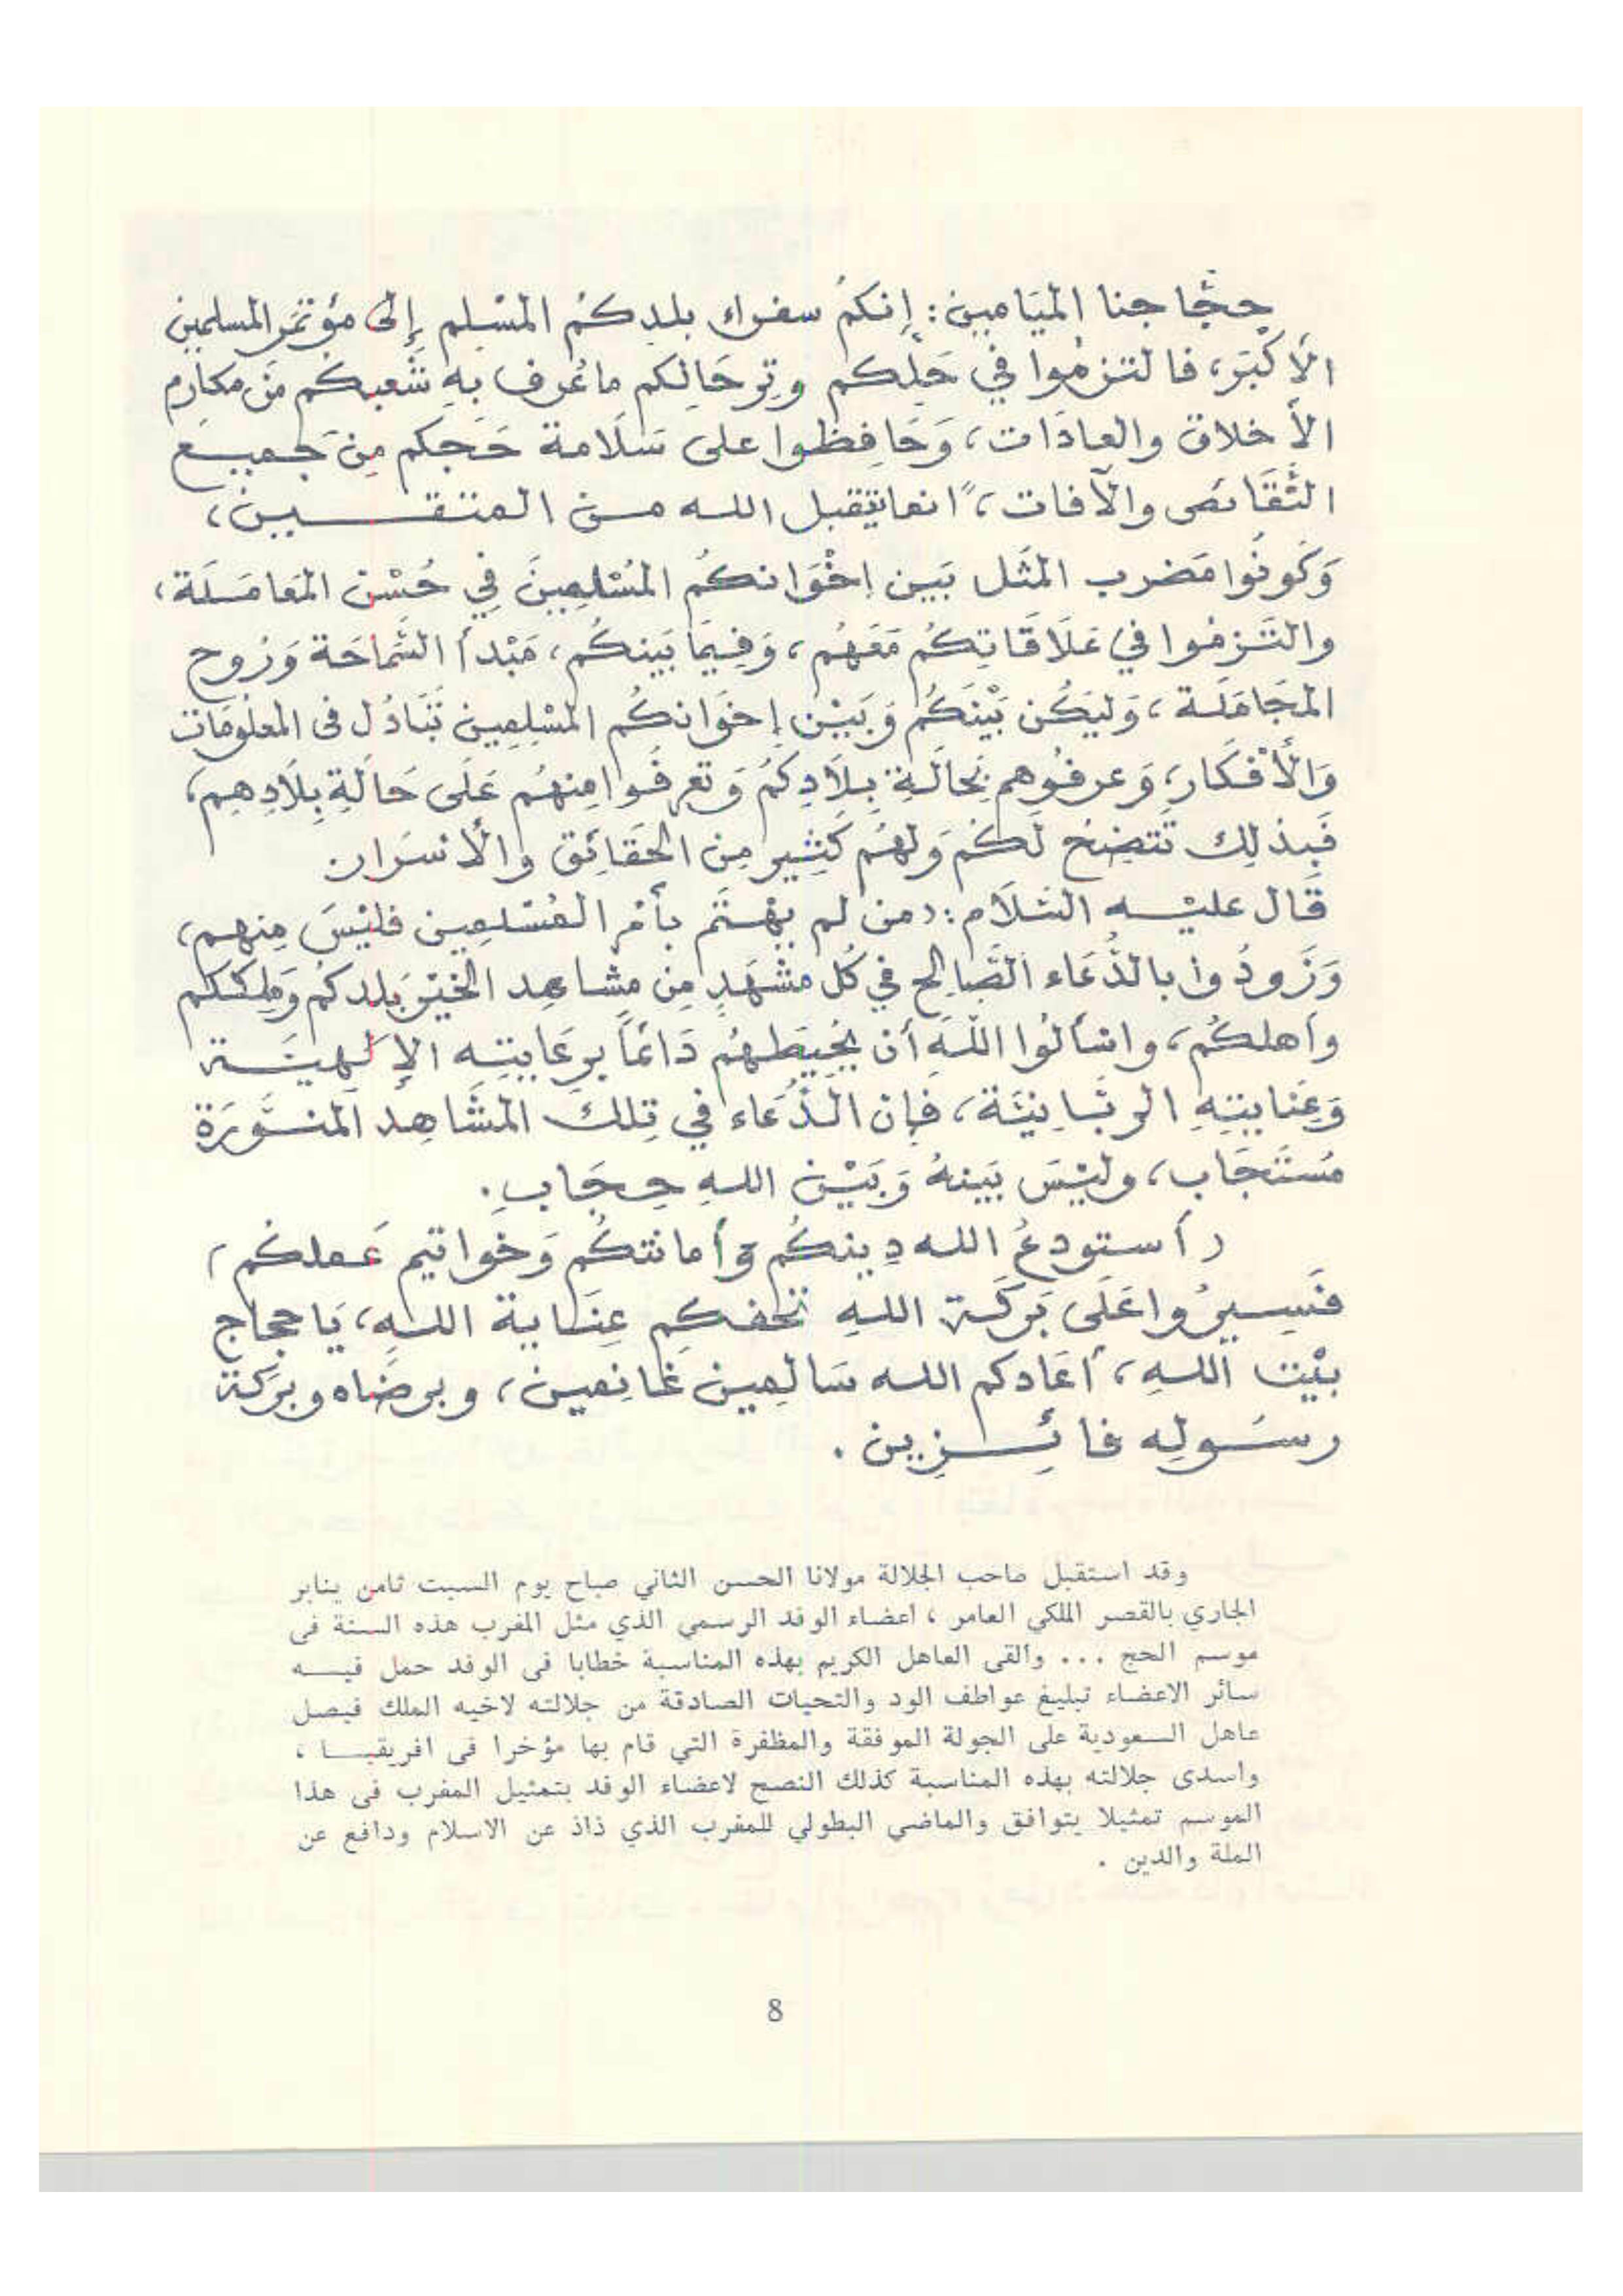 حجَّاجنا الميَامين: إنكمُ سفراء بلدكمُ المسْلم إلى مؤتمَر المسلمين
الأكْبَر، فالتزمُوا في حَلِّكم وتِرحَالِكم ما عُرف به شَعبكم منَ مكارم
الأخلاق والعادَات، وَحَافِظوا على سَلَامة حَجكم مِنَ جميع
النَّقَائص والآفات، "انما يتقبل الله من المتقين،
وَكُونُوا مَضرب المثَل بَين إخْوَانكمُ المُسْلِمِينَ فِي حُسْن المعَامَلَة،
والتَزمُوا في عَلَاقَاتِكُم مَعَهُم، وَفِيمَا بَينكُم، مَبْدأ السَّمَاحَة وَرُوح
المجَامَلَة، وَليَكُن بَيْنَكُم وَبَيْن إخوَانكُم المسْلِمِين تبَادُل فى المعلُومَات
وَالأفْكَار، وَعرفُوهم بِحَالَةِ بِلَادِكُم وَتعرفُوا مِنهُم عَلَى حَالَةِ بِلَادِهِم،
فَبِذلِك تَتضِحُ لَكُم وَلهُم كَثِير مِن الحَقَائِق والأسْرَار.
قَال عليْه السَّلَام: (من لم يهْتَم بأمْر المُسْلمِين فليْسَ مِنهم)
وَزَودُوا بالدُّعَاء الصَّالح في كُل مشْهَدٍ مِن مشاهِد الخيْر بَلدكُم وَمَلِككم
وأهلكُم، واسْألُوا اللهَ أن يُحِيطهُم دَائماً برعَايتِه الإلهيَّة
وَعِنايتِهِ الربَّانِيَّة، فإن الدُّعَاء في تِلكَ المشَاهِد المنَوَّرَة
مُستَجَاب، وليْسَ بَينهُ وَبَيْن اللهِ حِجَاب.
(أستودعُ الله دِينكُم وَأمانتكُم وَخواتيم عَملكُم)
فَسِيرُوا عَلَى بَركَة اللهِ تحُفكم عِنَاية اللهِ، يَا حجاج
بيْت اللهِ، أعَادكم الله سَالمِين غَانِمين، وبرضَاه وبرَكة
رسُولِه فائِزِين.
وقد استقبل صاحب الجلالة مولانا الحسن الثاني صباح يوم السبت ثامن يناير
الجاري بالقصر الملكي العامر ، اعضاء الوفد الرسمي الذي مثل المغرب هذه السنة فى
موسم الحج ... والقى العاهل الكريم بهذه المناسبة خطابا فى الوفد حمل فيه
سائر الاعضاء تبليغ عواطف الود والتحيات الصادقة من جلالته لاخيه الملك فيصل
عاهل السعودية على الجولة الموفقة والمظفرة التي قام بها مؤخرا فى افريقيا ،
واسدى جلالته بهذه المناسبة كذلك النصح لاعضاء الوفد بتمثيل المغرب فى هذا
الموسم تمثيلا يتوافق والماضي البطولي للمغرب الذي ذاذ عن الاسلام ودافع عن
الملة والدين .
8